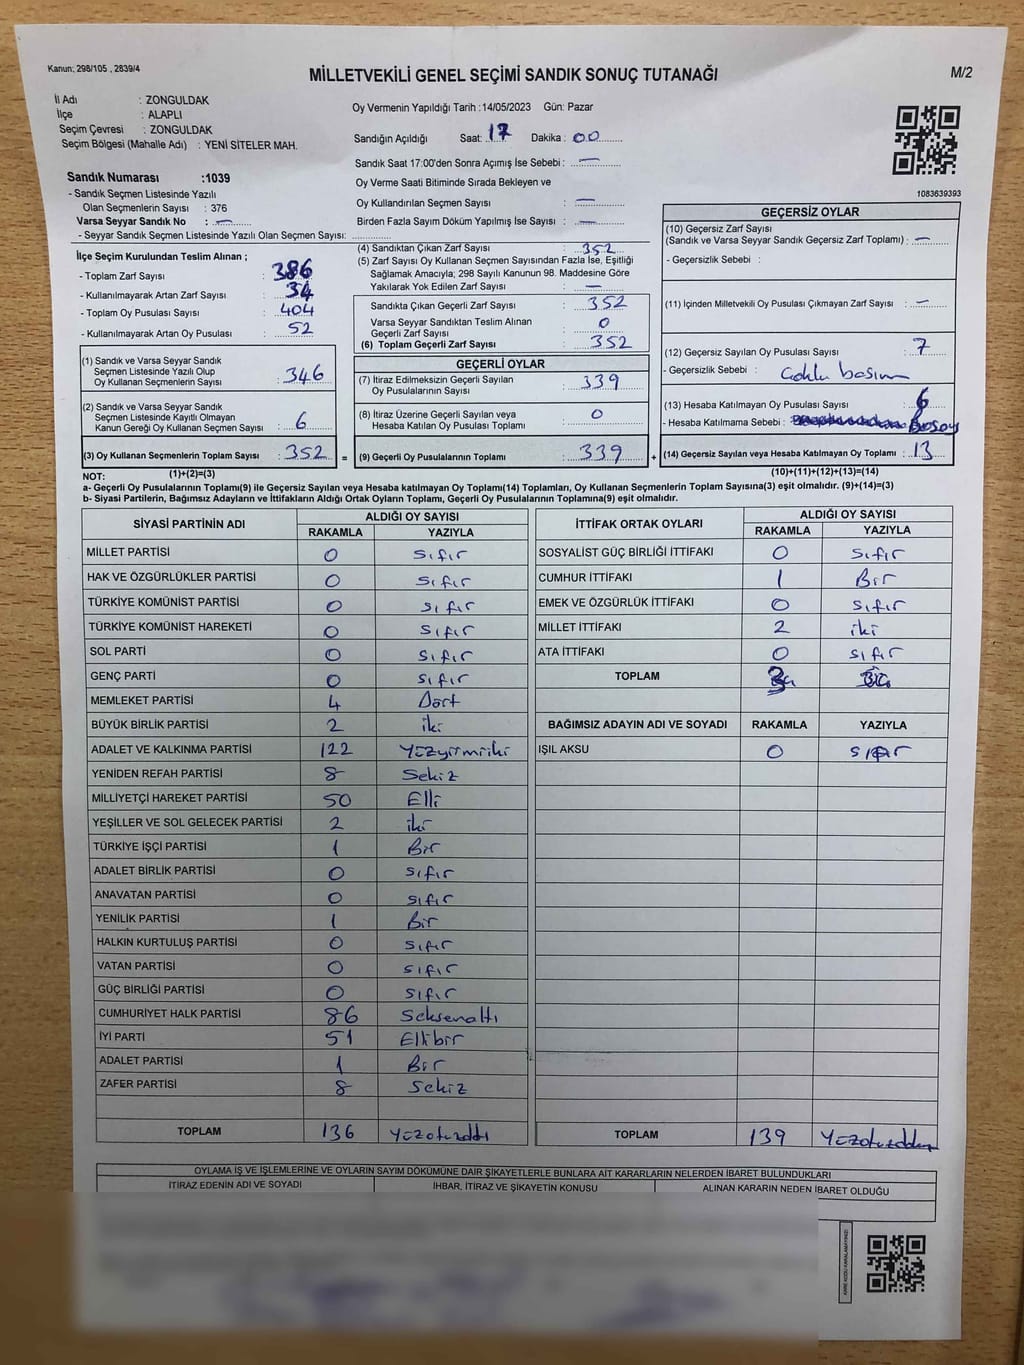 Kanun: 298/105 , 2839/4
MİLLETVEKİLİ GENEL SEÇİMİ SANDIK SONUÇ TUTANAĞI
M/2
İl Adı : ZONGULDAK
İlçe : ALAPLI
Seçim Çevresi : ZONGULDAK
Seçim Bölgesi (Mahalle Adı) : YENİ SİTELER MAH.
Oy Vermenin Yapıldığı Tarih :14/05/2023 Gün: Pazar
Sandığın Açıldığı Saat: 17 Dakika : 00
Sandık Saat 17:00'den Sonra Açımış İse Sebebi : —
Oy Verme Saati Bitiminde Sırada Bekleyen ve
Oy Kullandırılan Seçmen Sayısı : —
Birden Fazla Sayım Döküm Yapılmış İse Sayısı : —
1083639393
Sandık Numarası :1039
- Sandık Seçmen Listesinde Yazılı
Olan Seçmenlerin Sayısı : 376
Varsa Seyyar Sandık No : —
- Seyyar Sandık Seçmen Listesinde Yazılı Olan Seçmen Sayısı:
İlçe Seçim Kurulundan Teslim Alınan ;
- Toplam Zarf Sayısı : 386
- Kullanılmayarak Artan Zarf Sayısı : 34
- Toplam Oy Pusulası Sayısı : 404
- Kullanılmayarak Artan Oy Pusulası : 52
(1) Sandık ve Varsa Seyyar Sandık
Seçmen Listesinde Yazılı Olup
Oy Kullanan Seçmenlerin Sayısı : 346
(2) Sandık ve Varsa Seyyar Sandık
Seçmen Listesinde Kayıtlı Olmayan
Kanun Gereği Oy Kullanan Seçmen Sayısı : 6
(3) Oy Kullanan Seçmenlerin Toplam Sayısı : 352 =
(4) Sandıktan Çıkan Zarf Sayısı : 352
(5) Zarf Sayısı Oy Kullanan Seçmen Sayısından Fazla İse, Eşitliği
Sağlamak Amacıyla; 298 Sayılı Kanunun 98. Maddesine Göre
Yakılarak Yok Edilen Zarf Sayısı : —
Sandıkta Çıkan Geçerli Zarf Sayısı : 352
Varsa Seyyar Sandıktan Teslim Alınan
Geçerli Zarf Sayısı : 0
(6) Toplam Geçerli Zarf Sayısı : 352
GEÇERLİ OYLAR
(7) İtiraz Edilmeksizin Geçerli Sayılan
Oy Pusulalarının Sayısı : 339
(8) İtiraz Üzerine Geçerli Sayılan veya
Hesaba Katılan Oy Pusulası Toplamı : 0
(9) Geçerli Oy Pusulalarının Toplamı : 339 +
GEÇERSİZ OYLAR
(10) Geçersiz Zarf Sayısı
(Sandık ve Varsa Seyyar Sandık Geçersiz Zarf Toplamı) : —
- Geçersizlik Sebebi :
(11) İçinden Milletvekili Oy Pusulası Çıkmayan Zarf Sayısı : —
(12) Geçersiz Sayılan Oy Pusulası Sayısı : 7
- Geçersizlik Sebebi : Çoklu basım
(13) Hesaba Katılmayan Oy Pusulası Sayısı : 6
- Hesaba Katılmama Sebebi :
(14) Geçersiz Sayılan veya Hesaba Katılmayan Oy Toplamı : 13
NOT: (1)+(2)=(3) (10)+(11)+(12)+(13)=(14)
a- Geçerli Oy Pusulalarının Toplamı(9) ile Geçersiz Sayılan veya Hesaba Katılmayan oy Toplamı(14) Toplamları, Oy Kullanan Seçmenlerin Toplam Sayısına(3) eşit olmalıdır. (9)+(14)=(3)
b- Siyasi Partilerin, Bağımsız Adayların ve İttifakların Aldığı Ortak Oyların Toplamı, Geçerli Oy Pusulalarının Toplamına(9) eşit olmalıdır.
SİYASİ PARTİNİN ADI ALDIĞI OY SAYISI
RAKAMLA YAZIYLA
MİLLET PARTİSİ 0 Sıfır
HAK VE ÖZGÜRLÜKLER PARTİSİ 0 Sıfır
TÜRKİYE KOMÜNİST PARTİSİ 0 Sıfır
TÜRKİYE KOMÜNİST HAREKETİ 0 Sıfır
SOL PARTİ 0 Sıfır
GENÇ PARTİ 0 Sıfır
MEMLEKET PARTİSİ 4 Dört
BÜYÜK BİRLİK PARTİSİ 2 iki
ADALET VE KALKINMA PARTİSİ 122 Yüzyirmiiki
YENİDEN REFAH PARTİSİ 8 Sekiz
MİLLİYETÇİ HAREKET PARTİSİ 50 Elli
YEŞİLLER VE SOL GELECEK PARTİSİ 2 iki
TÜRKİYE İŞÇİ PARTİSİ 1 Bir
ADALET BİRLİK PARTİSİ 0 Sıfır
ANAVATAN PARTİSİ 0 Sıfır
YENİLİK PARTİSİ 1 Bir
HALKIN KURTULUŞ PARTİSİ 0 Sıfır
VATAN PARTİSİ 0 Sıfır
GÜÇ BİRLİĞİ PARTİSİ 0 Sıfır
CUMHURİYET HALK PARTİSİ 86 Seksenaltı
İYİ PARTİ 51 Ellibir
ADALET PARTİSİ 1 Bir
ZAFER PARTİSİ 8 Sekiz
TOPLAM 136
İTTİFAK ORTAK OYLARI ALDIĞI OY SAYISI
RAKAMLA YAZIYLA
SOSYALİST GÜÇ BİRLİĞİ İTTİFAKI 0 Sıfır
CUMHUR İTTİFAKI 1 Bir
EMEK VE ÖZGÜRLÜK İTTİFAKI 0 Sıfır
MİLLET İTTİFAKI 2 iki
ATA İTTİFAKI 0 Sıfır
TOPLAM
BAĞIMSIZ ADAYIN ADI VE SOYADI RAKAMLA YAZIYLA
IŞIL AKSU 0 Sıfır
TOPLAM 139
OYLAMA İŞ VE İŞLEMLERİNE VE OYLARIN SAYIM DÖKÜMÜNE DAİR ŞİKAYETLERLE BUNLARA AİT KARARLARIN NELERDEN İBARET BULUNDUKLARI
İTİRAZ EDENİN ADI VE SOYADI İHBAR, İTİRAZ VE ŞİKAYETİN KONUSU ALINAN KARARIN NEDEN İBARET OLDUĞU
KARE KODU KARALAMAYINIZ!